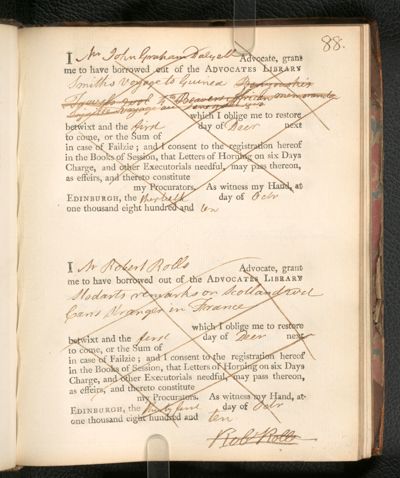 88.
I Mr John Graham Dalyell Advocate, grant
me to have borrowed out of the ADVOCATES LIBRARY
Smiths Voyage to Guinea
Beavers African memoranda
which I oblige me to restore
betwixt and the first day of Decr next
to come, or the Sum of
in case of Failzie; and I consent to the registration hereof
in the Books of Session, that Letters of Horning on six Days
Charge, and other Executorials needful, may pass thereon,
as effeirs, and thereto constitute
my Procurators. As witness my Hand, at
EDINBURGH, the day of Octr
one thousand eight hundred and ten
I Mr Robert Rolls Advocate, grant
me to have borrowed out of the ADVOCATES LIBRARY
Stodarts remarks on Scotland 2 vol
Carrs Stranger in France
which I oblige me to restore
betwixt and the first day of Decr next
to come, or the Sum of
in case of Failzie; and I consent to the registration hereof
in the Books of Session, that Letters of Horning on six Days
Charge, and other Executorials needful, may pass thereon,
as effeirs, and thereto constitute
my Procurators. As witness my Hand, at
EDINBURGH, the thirty first day of Octr
one thousand eight hundred and ten
Robt Rolls